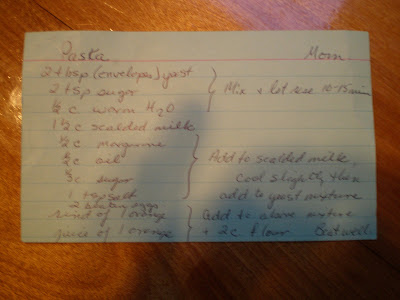 Pasta Mom
2 tbsp (envelopes) yeast
2 tsp sugar Mix & let rise 10-15 min
½ c warm H2O
1 ½ c scalded milk
½ c margarine
oil Add to scalded milk,
c sugar cool slightly, then
1 tsp salt add to yeast mixture
2 beaten eggs
rind of 1 orange Add to above mixture
juice of 1 orange + 2 c. flour Beat well